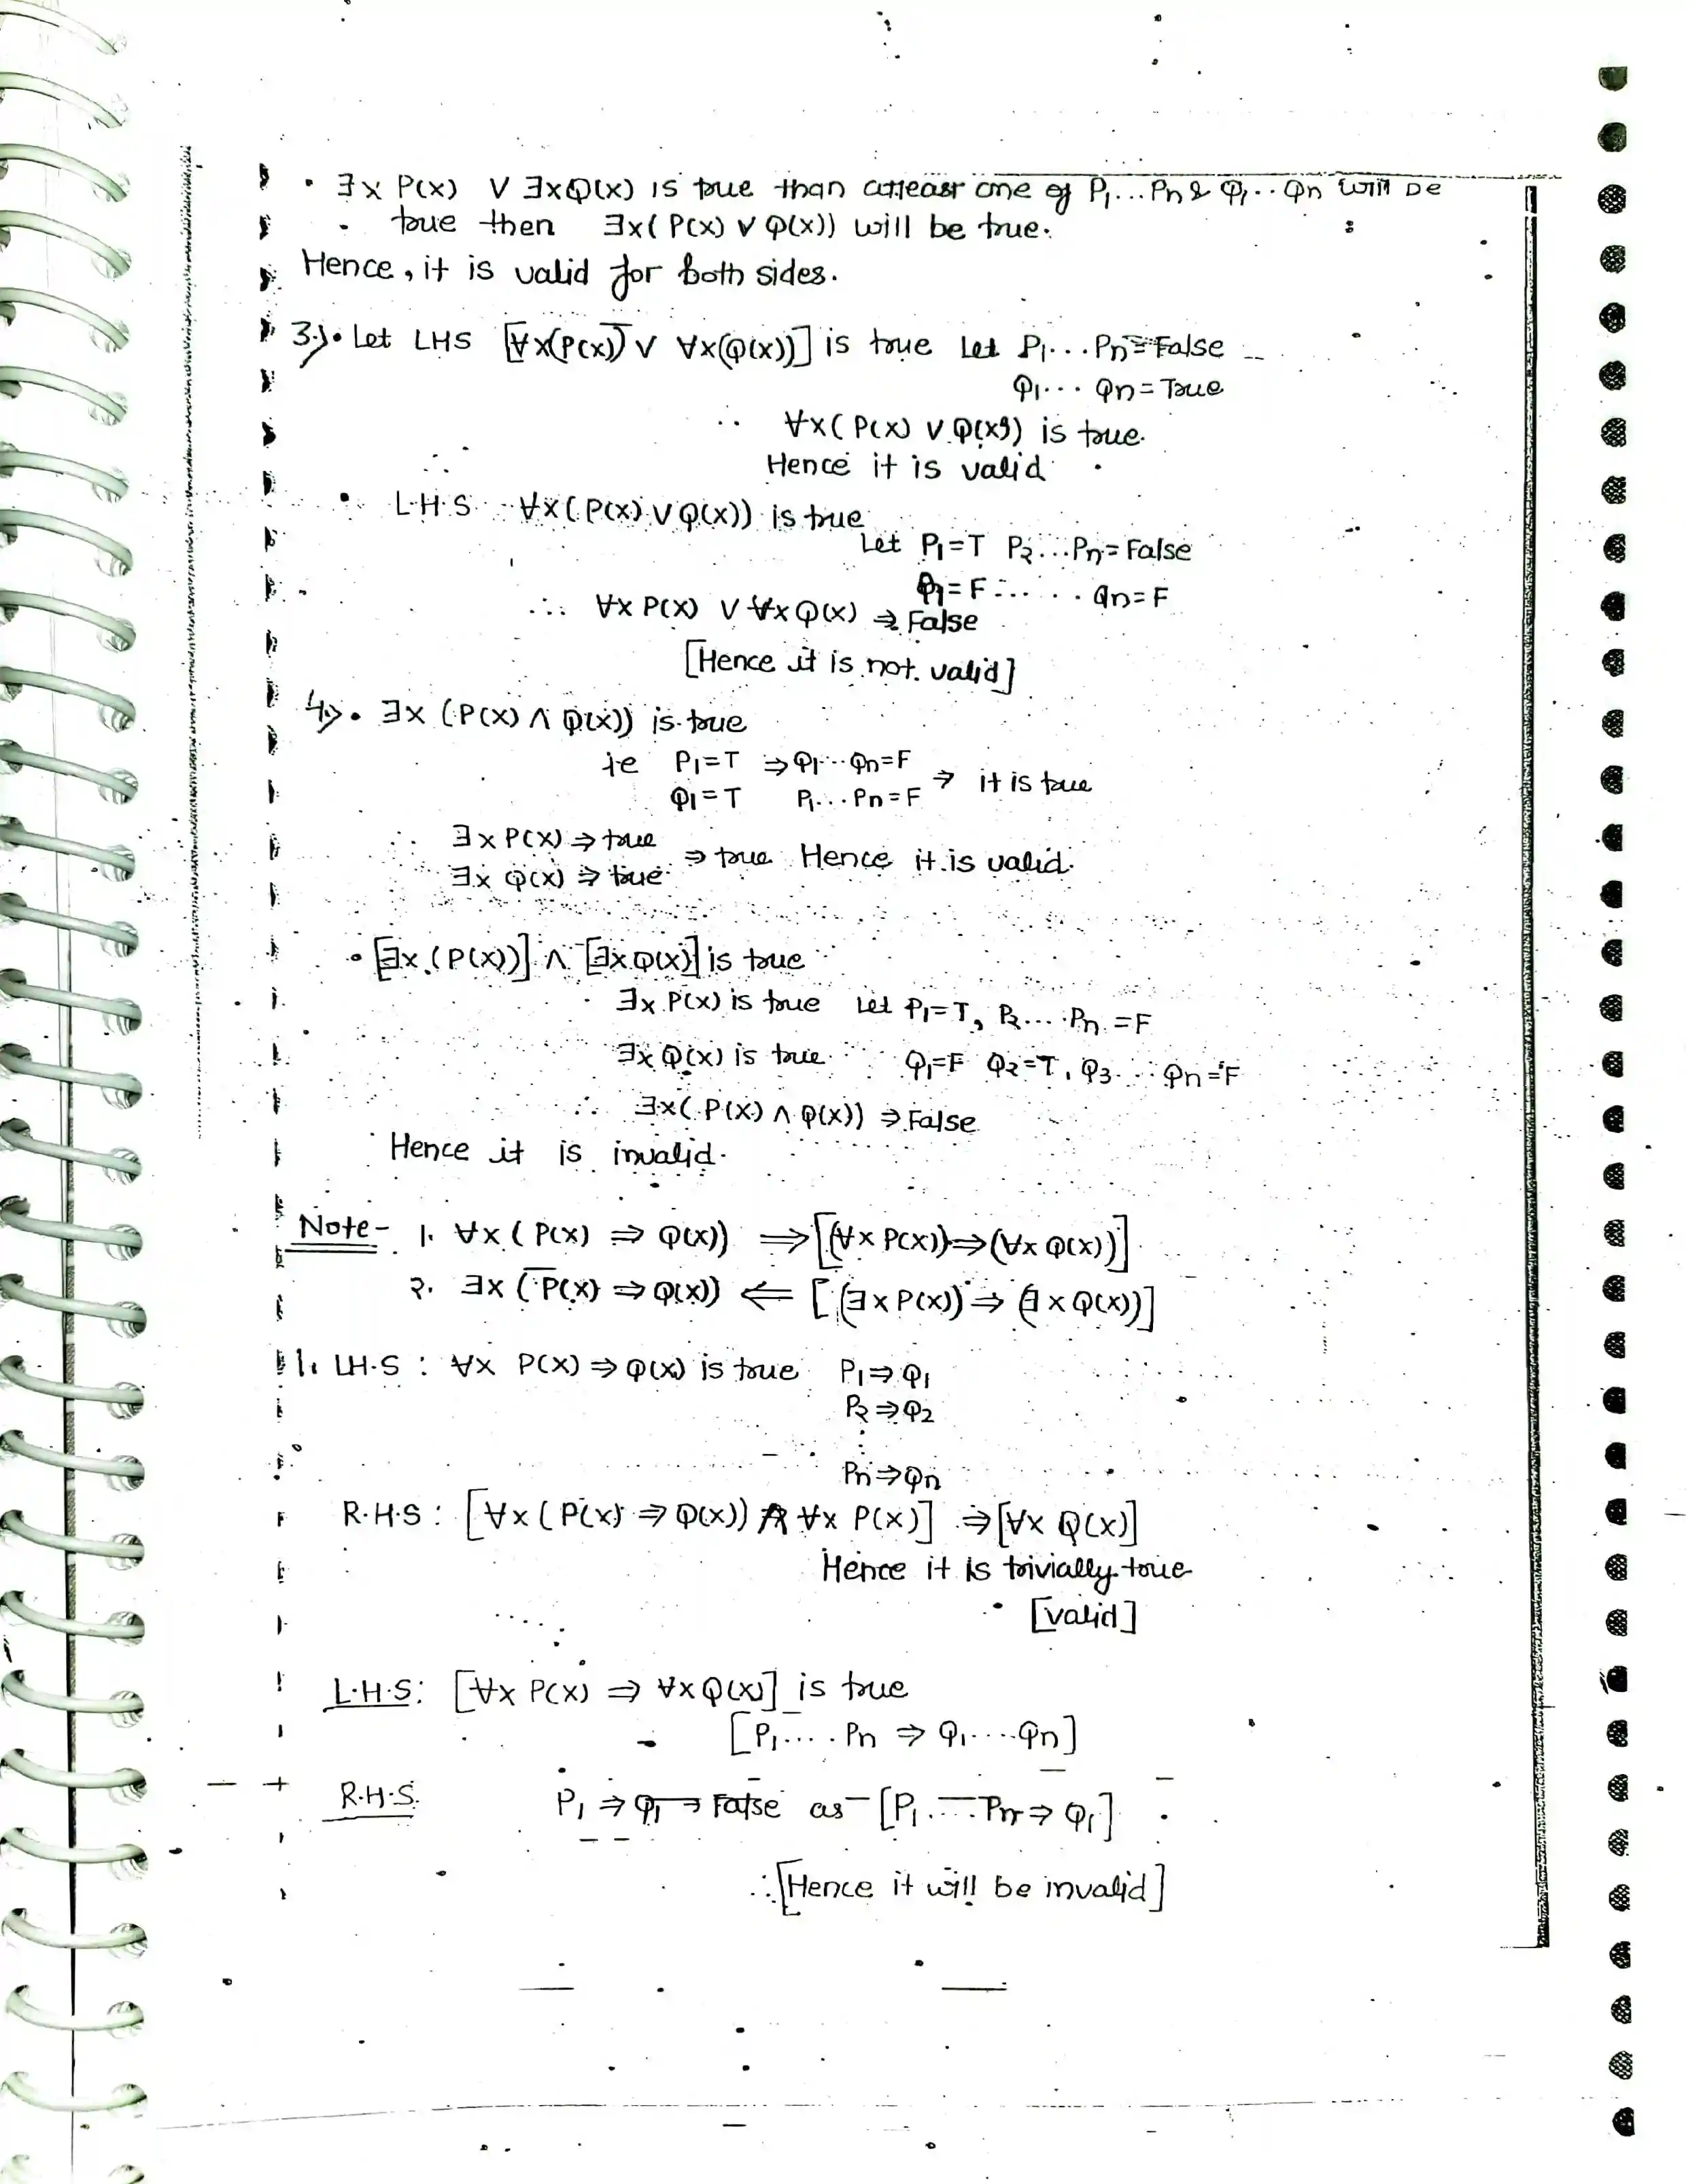 • ∃x P(x) ∨ ∃xQ(x) is true than atleast one of P₁...Pn & Q₁..Qn will be
true then ∃x(P(x) ∨ Q(x)) will be true.
Hence, it is valid for both sides.
3.> • Let LHS [∀x(P(x)) ∨ ∀x(Q(x))] is true Let P₁...Pn = False
Q₁... Qn = True
∀x(P(x) ∨ Q(x)) is true.
Hence it is valid
• L.H.S ∀x(P(x) ∨ Q(x)) is true
Let P₁=T P₂...Pn = False
Q₁=F ..... Qn=F
∴ ∀x P(x) ∨ ∀x Q(x) ⇒ False
[Hence it is not valid]
4.> • ∃x (P(x) ∧ Q(x)) is true
ie P₁=T ⇒ Q₁...Qn=F
Q₁=T P₁...Pn=F ⇒ it is true
∴ ∃x P(x) ⇒ true
∃x Q(x) ⇒ true ⇒ true Hence it is valid.
• [∃x (P(x))] ∧ [∃x Q(x)] is true
∃x P(x) is true Let P₁=T, P₂....Pn =F
∃x Q(x) is true Q₁=F Q₂=T, Q₃...Qn =F
∴ ∃x(P(x) ∧ Q(x)) ⇒ False
Hence it is invalid.
Note- 1. ∀x (P(x) ⇒ Q(x)) ⟹ [(∀x P(x)) ⇒ (∀x Q(x))]
2. ∃x (P(x) ⇒ Q(x)) ⟸ [(∃x P(x)) ⇒ (∃x Q(x))]
1. LH.S : ∀x P(x) ⇒ Q(x) is true P₁⇒Q₁
P₂⇒Q₂
⋮
Pn⇒Qn
R.H.S : [∀x (P(x) ⇒ Q(x)) ∧ ∀x P(x)] ⇒ [∀x Q(x)]
Hence it is trivially true
[valid]
L.H.S: [∀x P(x) ⇒ ∀x Q(x)] is true
[P₁.... Pn ⇒ Q₁....Qn]
R.H.S. P₁ ⇒ Q₁ → False as [P₁....Pn ⇒ Q₁]
∴ [Hence it will be invalid]